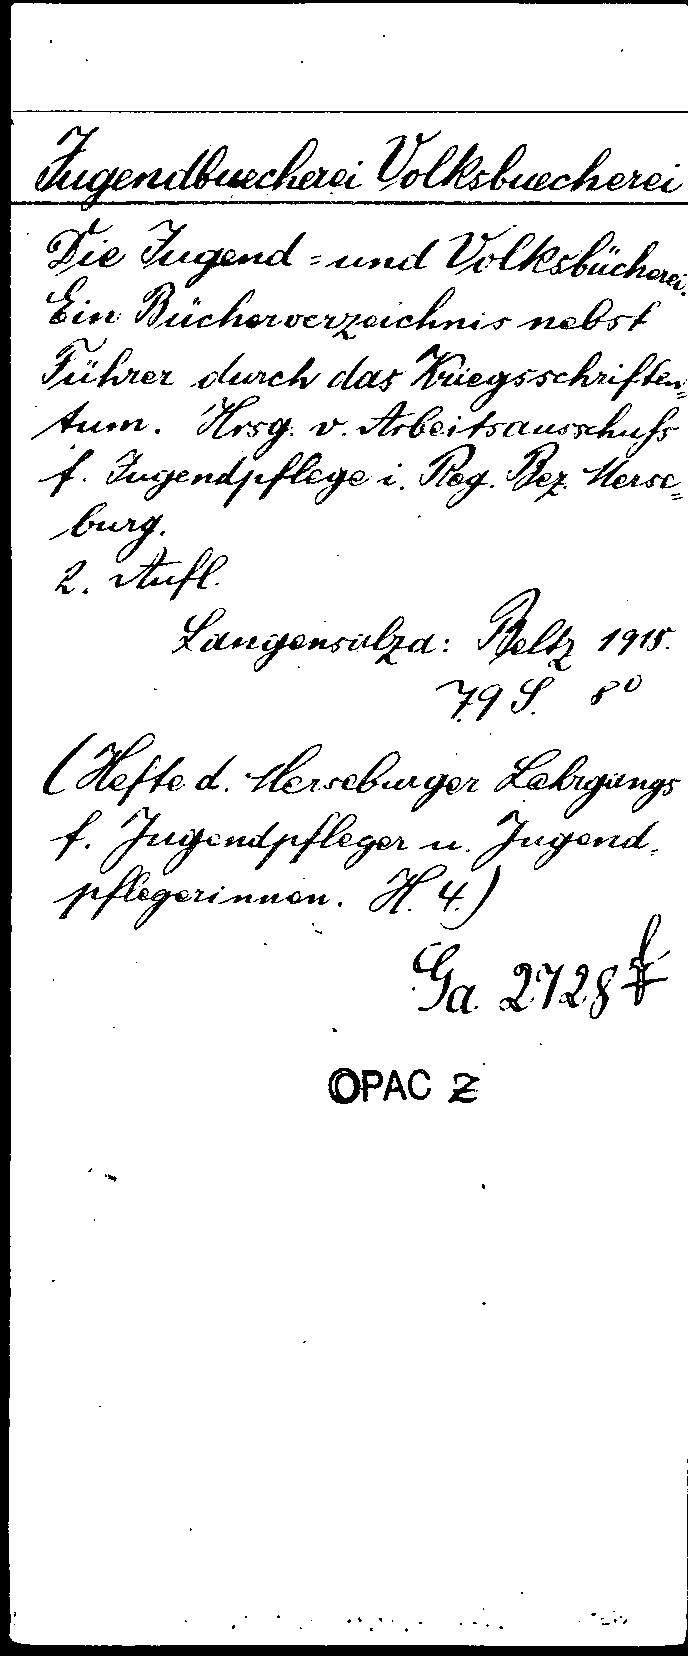 Jugendbuecherei Volksbuecherei
Die Jugend- und Volksbücherei.
Ein Bücherverzeichnis nebst
Führer durch das Kriegsschriften-
tum. Hrsg. v. Arbeitsausschuss
f. Jugendpflege i. Reg. Bez. Merse-
burg.
2. Aufl.
Langensalza: Beltz 1915.
79 S. 8°
(Hefte d. Merseburger Lehrgangs
f. Jugendpfleger u. Jugend-
pflegerinnen. H. 4.)
Ga 2728
OPAC Z